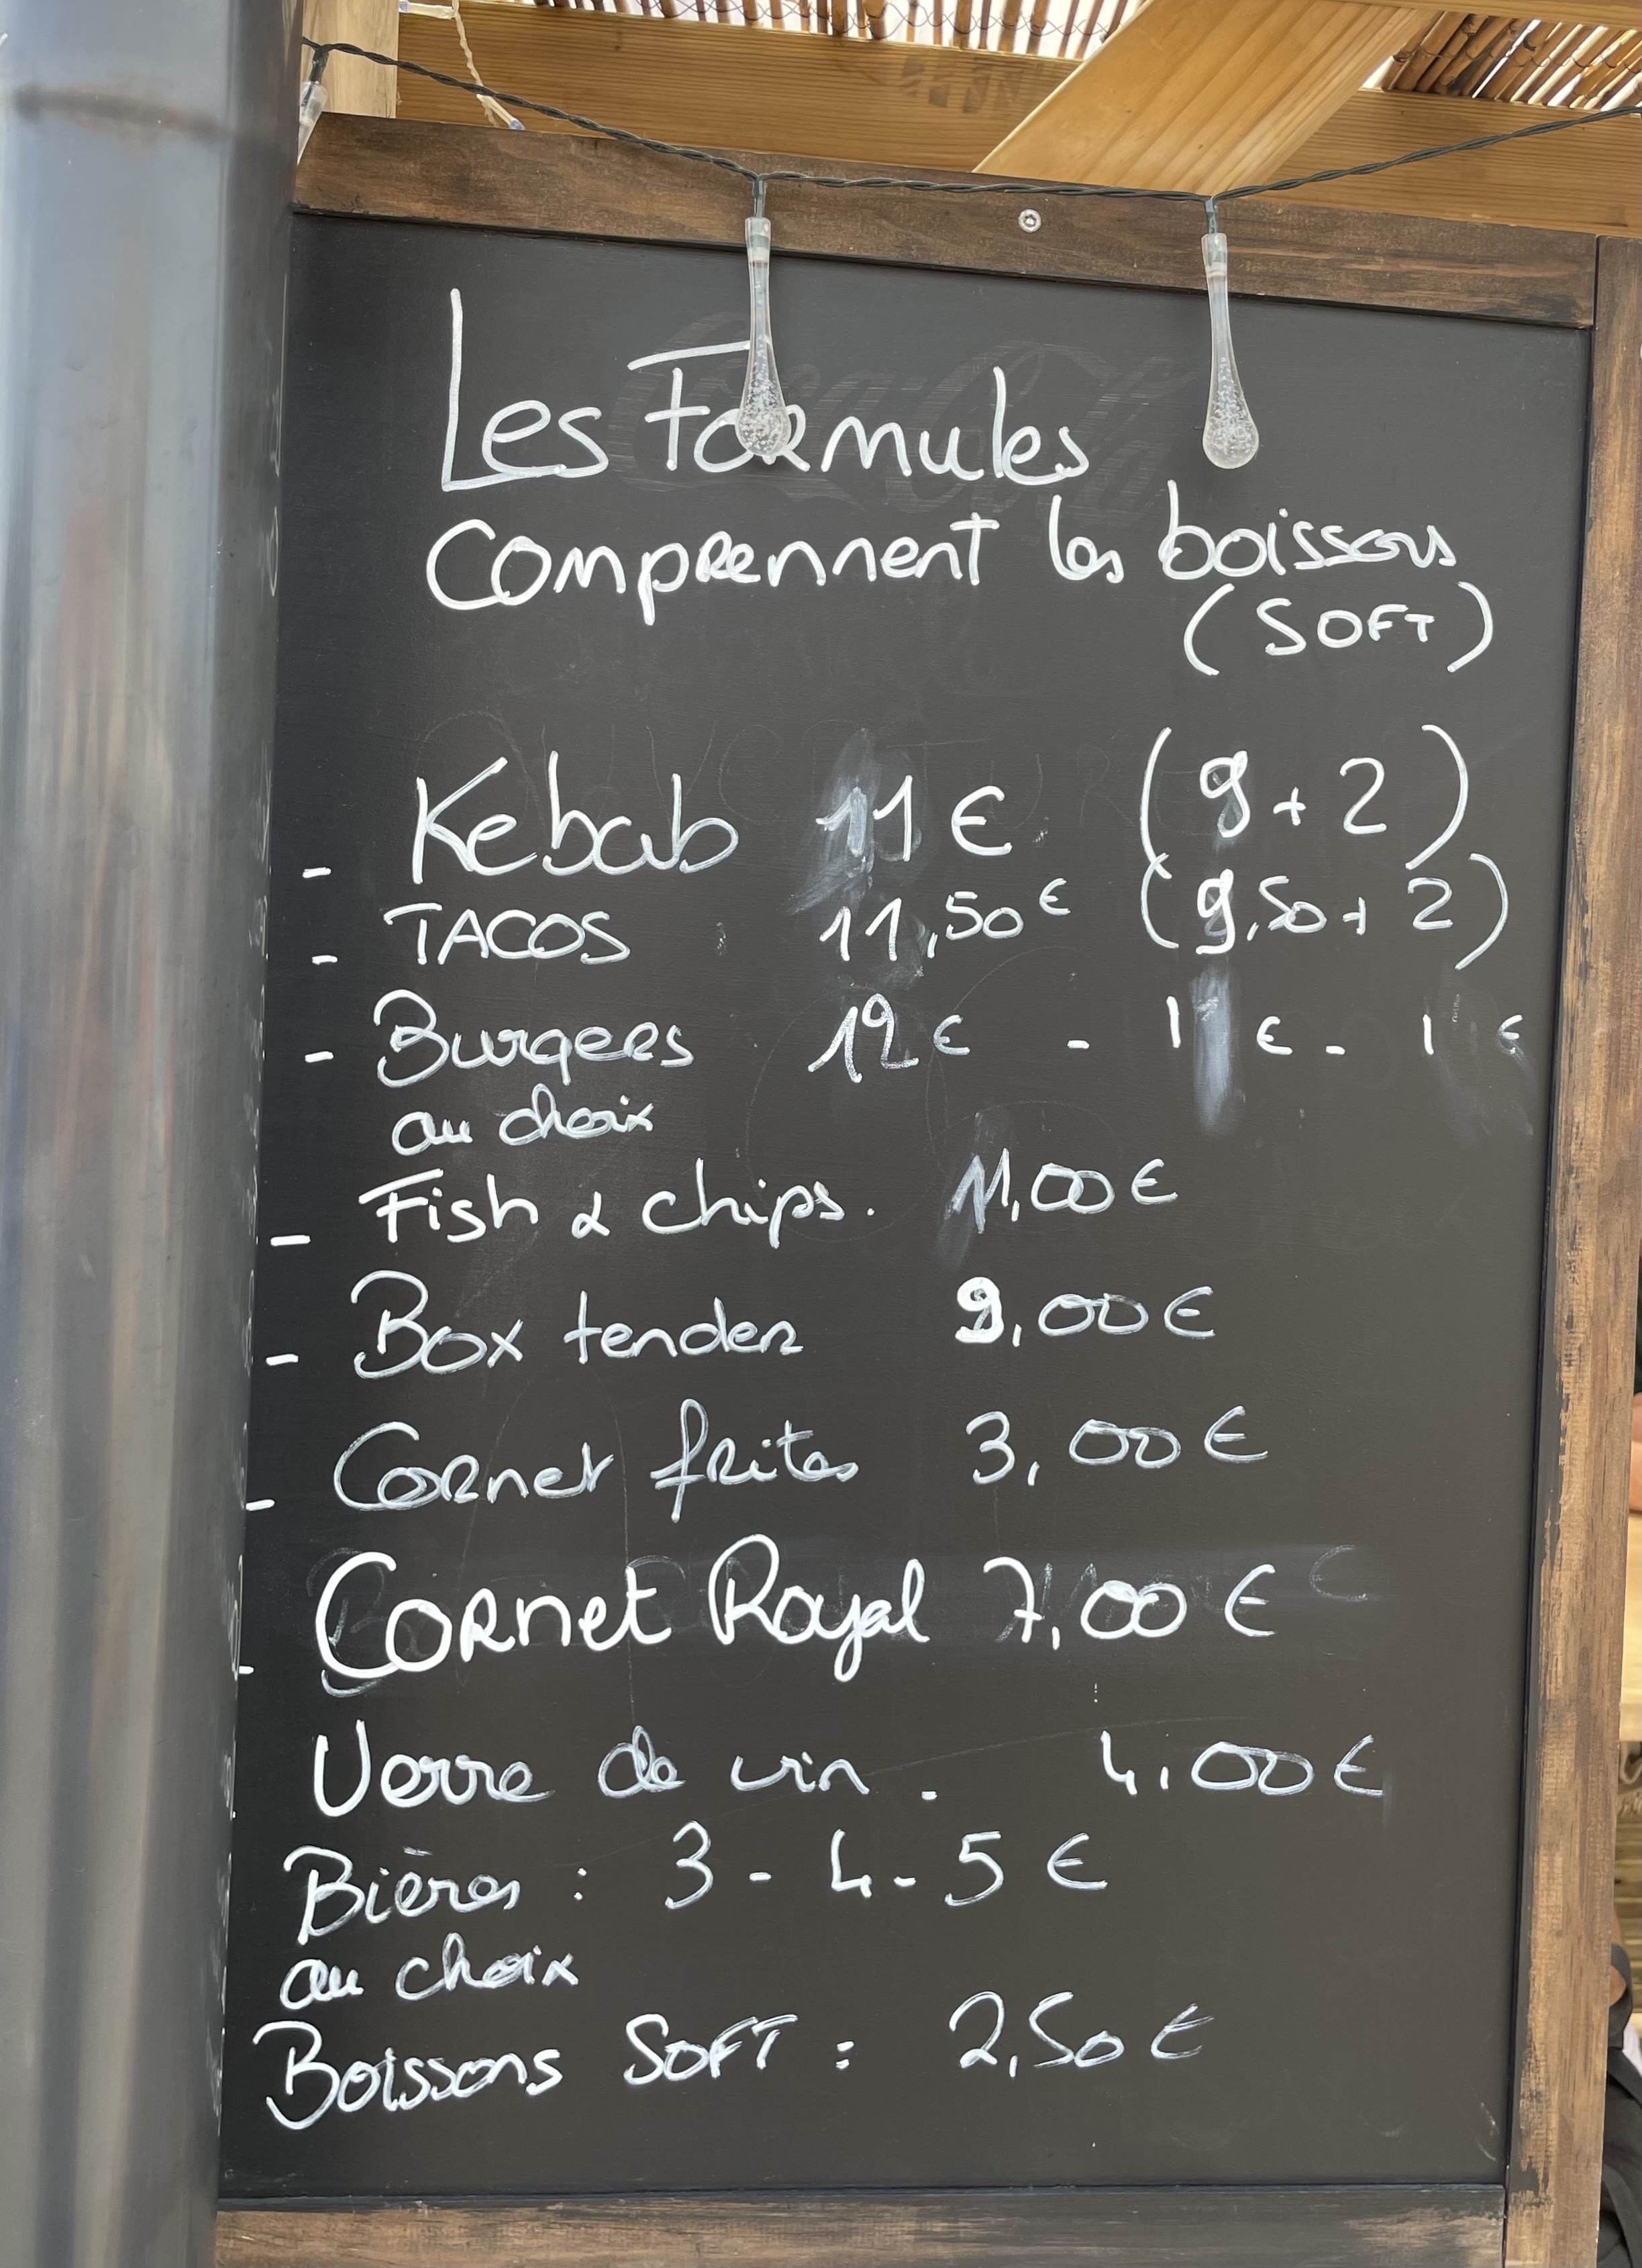 Les Formules
Comprennent les boissons
(SOFT)
- Kebab 11€ (9+2)
- TACOS 11,50€ (9,50+2)
- Burgers 12€ - 1 € - 1 €
au choix
- Fish & chips. 11,00€
- Box tender 9,00€
- Cornet frites 3,00€
- Cornet Royal 7,00€
Verre de vin - 4,00€
Bières : 3-4-5€
au choix
Boissons SOFT : 2,50€